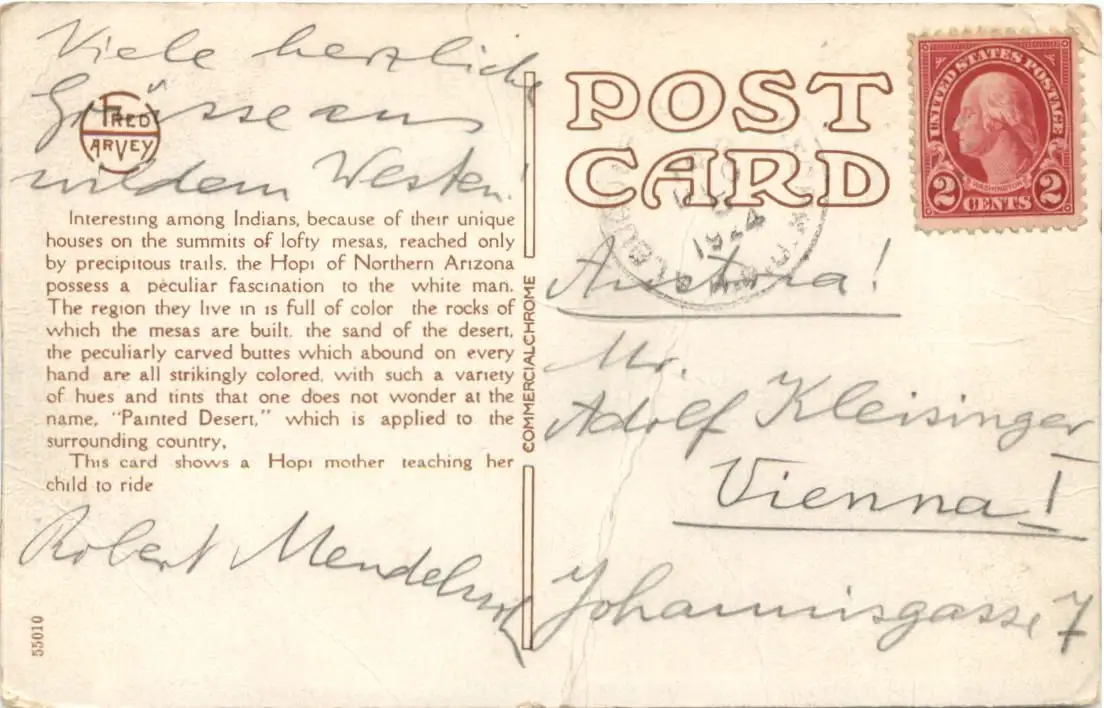 Viele herzliche
Grüsse aus
wildem Westen!
FRED HARVEY
Interesting among Indians, because of their unique
houses on the summits of lofty mesas, reached only
by precipitous trails, the Hopi of Northern Arizona
possess a peculiar fascination to the white man.
The region they live in is full of color the rocks of
which the mesas are built, the sand of the desert,
the peculiarly carved buttes which abound on every
hand are all strikingly colored, with such a variety
of hues and tints that one does not wonder at the
name, "Painted Desert," which is applied to the
surrounding country,
This card shows a Hopi mother teaching her
child to ride
Robert
55010
COMMERCIALCHROME
POST
CARD
UNITED STATES POSTAGE
WASHINGTON
2 CENTS 2
Austria!
Mr.
Adolf Kleisinger
Vienna!
Johannisgasse 7